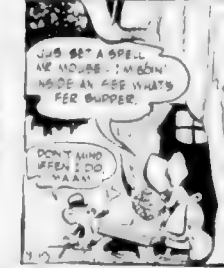 JUS SET A SPELL
MR MOUSE - I'M GOIN'
INSIDE AN SEE WHATS
FER SUPPER.
DON'T MIND
EFFEN I DO,
MAAM